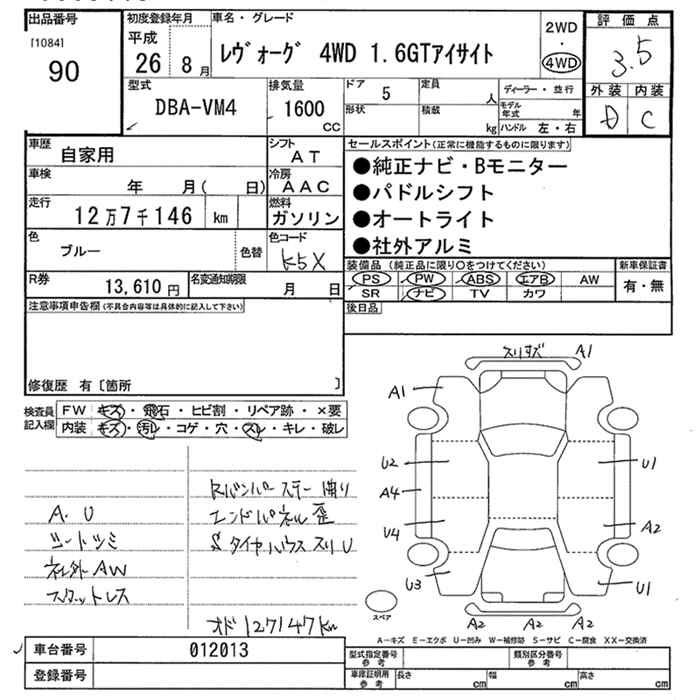 出品番号
[1084]
90
初度登録年月
平成
26 8月
車名・グレード
レヴォーグ 4WD 1.6GTアイサイト
2WD
・
4WD
評価点
3.5
外装 内装
D C
型式
DBA-VM4
排気量
1600
CC
ドア 5
形状
定員
人
積載
kg
ディーラー・並行
モデル年式 年
ハンドル 左・右
車歴
自家用
シフト
AT
車検
年 月( 日)
冷房
AAC
走行
12万7千146 km
燃料
ガソリン
色
ブルー
色替
色コード
K5X
R券
13,610 円
名変通知期限
月 日
セールスポイント(正常に機能するものに限ります)
●純正ナビ・Bモニター
●パドルシフト
●オートライト
●社外アルミ
装備品 (純正品に限り○をつけてください)
PS PW ABS エアB AW
SR ナビ TV カワ
新車保証書
有・無
後日品
注意事項申告欄(不具合内容等は具体的に記入して下さい)
修復歴 有〔箇所 〕
検査員記入欄
FW キズ・飛石・ヒビ割・リペア跡・×要
内装 キズ・汚レ・コゲ・穴・スレ・キレ・破レ
A・U
シートシミ
社外AW
スタットレス
Rバンパーステー曲り
エンドパネル歪
Sタイヤハウススリ U
オド127147km
スリキズ A1
A1
U2
A4
U4
U3
U1
A2
U1
A2 A2 A2
スペア
A－キズ E－エクボ U－凹み W－補修跡 S－サビ C－腐食 XX－交換済
車台番号 012013
登録番号
型式指定番号
参考
類別区分番号
参考
車庫証明用
参考
長さ cm
幅 cm
高さ cm